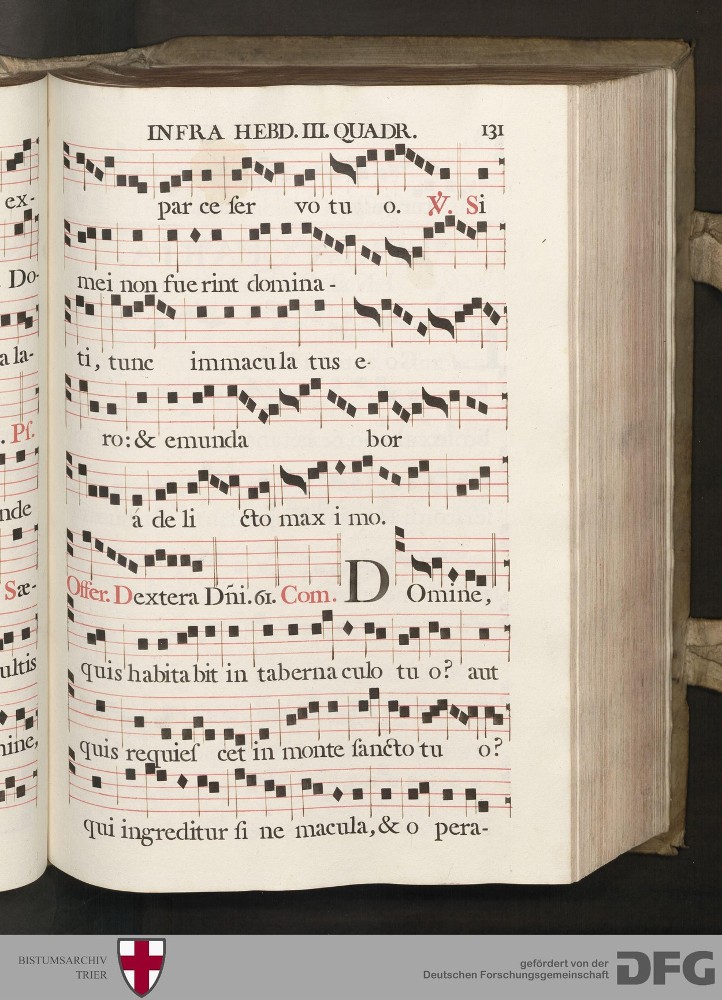 INFRA HEBD. III. QUADR. 131
ex-
par ce ſer vo tu o. ℣. Si
Do-
mei non fue rint domina -
a la-
ti, tunc immacula tus e-
. Pſ.
ro: & emunda bor
nde
á de li cto max i mo.
Sæ-
Offer. Dextera Dñi. 61. Com. D Omine,
ultis
quis habita bit in taberna culo tu o? aut
nine,
quis requieſ cet in monte ſancto tu o?
qui ingreditur ſi ne macula, & o pera-
BISTUMSARCHIV
TRIER
gefördert von der
Deutschen Forschungsgemeinschaft
DFG